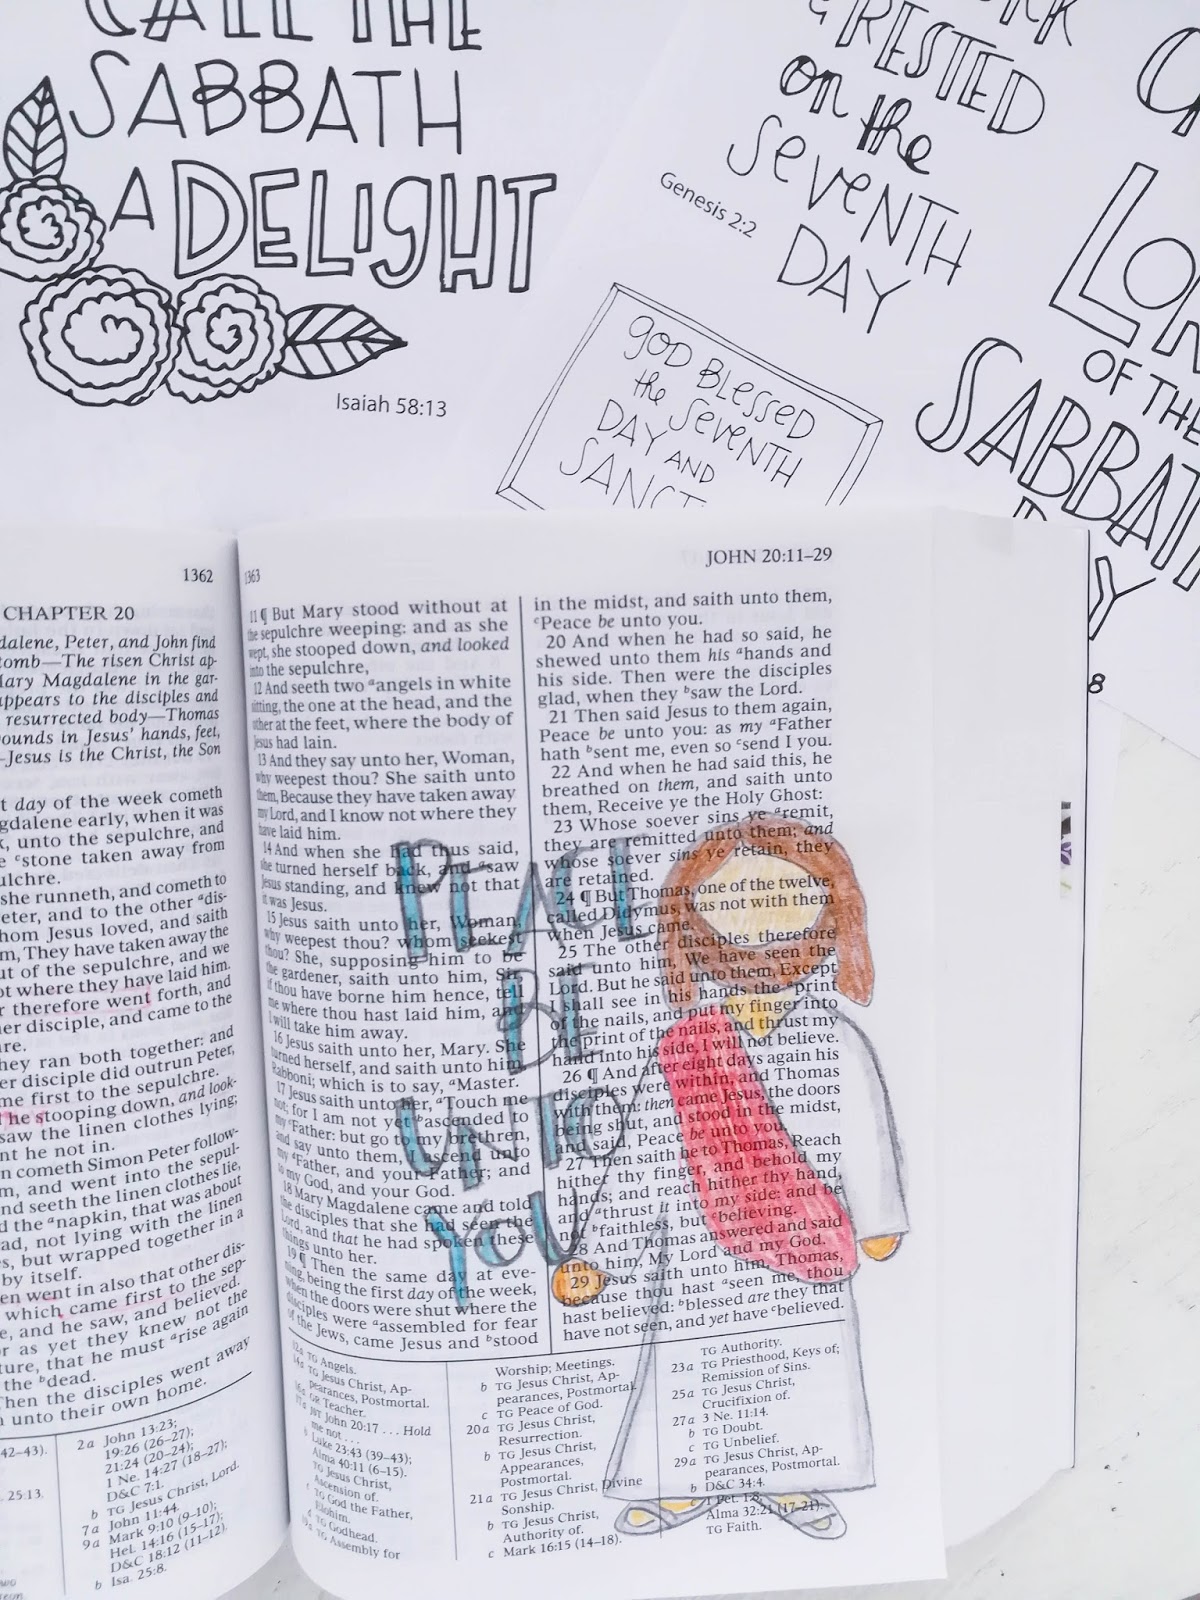 CALL THE
SABBATH
A DELIGHT
Isaiah 58:13
& RESTED
on the
SEVENTH
DAY
Genesis 2:2
GOD BLESSED
the SEVENTH
DAY AND
LORD
OF THE
SABBATH
8
1362
CHAPTER 20
Peter, and John find
The risen Christ ap-
Mary Magdalene in the gar-
appears to the disciples and
resurrected body—Thomas
in Jesus' hands, feet,
—Jesus is the Christ, the Son
day of the week cometh
early, when it was
unto the sepulchre, and
ᶜstone taken away from
she runneth, and cometh to
and to the other ᵃdis-
whom Jesus loved, and saith
They have taken away the
out of the sepulchre, and we
not where they have laid him.
therefore went forth, and
disciple, and came to the
they ran both together: and
disciple did outrun Peter,
first to the sepulchre.
he stooping down, and look-
saw the linen clothes lying;
he not in.
cometh Simon Peter follow-
and went into the sepul-
and seeth the linen clothes lie,
the ᵃnapkin, that was about
not lying with the linen
but wrapped together in a
by itself.
went in also that other dis-
which came first to the sep-
and he saw, and believed.
as yet they knew not the
that he must ᵃrise again
the ᵇdead.
Then the disciples went away
unto their own home.
42–43).
25:13.
2a John 13:23;
19:26 (26–27);
21:24 (20–24);
1 Ne. 14:27 (18–27);
D&C 7:1.
b TG Jesus Christ, Lord.
7a John 11:44.
9a Mark 9:10 (9–10);
Hel. 14:16 (15–17);
D&C 18:12 (11–12).
b Isa. 25:8.
1363
JOHN 20:11–29
11 ¶ But Mary stood without at
the sepulchre weeping: and as she
wept, she stooped down, and looked
into the sepulchre,
12 And seeth two ᵃangels in white
sitting, the one at the head, and the
other at the feet, where the body of
Jesus had lain.
13 And they say unto her, Woman,
why weepest thou? She saith unto
them, Because they have taken away
my Lord, and I know not where they
have laid him.
14 And when she had thus said,
she turned herself back, and ᵃsaw
Jesus standing, and knew not that
it was Jesus.
15 Jesus saith unto her, Woman,
why weepest thou? whom seekest
thou? She, supposing him to be
the gardener, saith unto him, Sir,
if thou have borne him hence, tell
me where thou hast laid him, and
I will take him away.
16 Jesus saith unto her, Mary. She
turned herself, and saith unto him,
Rabboni; which is to say, ᵃMaster.
17 Jesus saith unto her, ᵃTouch me
not; for I am not yet ᵇascended to
my ᶜFather: but go to my brethren,
and say unto them, I ascend unto
my ᵈFather, and your ᵉFather; and
to my God, and your God.
18 Mary Magdalene came and told
the disciples that she had seen the
Lord, and that he had spoken these
things unto her.
19 ¶ Then the same day at eve-
ning, being the first day of the week,
when the doors were shut where the
disciples were ᵃassembled for fear
of the Jews, came Jesus and ᵇstood
in the midst, and saith unto them,
ᶜPeace be unto you.
20 And when he had so said, he
shewed unto them his ᵃhands and
his side. Then were the disciples
glad, when they ᵇsaw the Lord.
21 Then said Jesus to them again,
Peace be unto you: as my ᵃFather
hath ᵇsent me, even so ᶜsend I you.
22 And when he had said this, he
breathed on them, and saith unto
them, Receive ye the Holy Ghost:
23 Whose soever sins ye ᵃremit,
they are remitted unto them; and
whose soever sins ye retain, they
are retained.
24 ¶ But Thomas, one of the twelve,
called Didymus, was not with them
when Jesus came.
25 The other disciples therefore
said unto him, We have seen the
Lord. But he said unto them, Except
I shall see in his hands the ᵃprint
of the nails, and put my finger into
the print of the nails, and thrust my
hand into his side, I will not believe.
26 ¶ And after eight days again his
disciples were within, and Thomas
with them: then came Jesus, the doors
being shut, and stood in the midst,
and said, Peace be unto you.
27 Then saith he to Thomas, Reach
hither thy finger, and behold my
hands; and reach hither thy hand,
and ᵃthrust it into my side: and be
not ᵇfaithless, but ᶜbelieving.
28 And Thomas answered and said
unto him, My Lord and my God.
29 Jesus saith unto him, Thomas,
because thou hast ᵃseen me, thou
hast believed: ᵇblessed are they that
have not seen, and yet have ᶜbelieved.
PEACE
BE
UNTO
YOU
12a TG Angels.
14a TG Jesus Christ, Ap-
pearances, Postmortal.
16a GR Teacher.
17a JST John 20:17 . . . Hold
me not . . .
b Luke 23:43 (39–43);
Alma 40:11 (6–15).
TG Jesus Christ,
Ascension of.
c TG God the Father,
Elohim.
TG Godhead.
19a TG Assembly for
Worship; Meetings.
b TG Jesus Christ, Ap-
pearances, Postmortal.
c TG Peace of God.
20a TG Jesus Christ,
Resurrection.
b TG Jesus Christ,
Appearances,
Postmortal.
21a TG Jesus Christ, Divine
Sonship.
b TG Jesus Christ,
Authority of.
c Mark 16:15 (14–18).
TG Authority.
23a TG Priesthood, Keys of;
Remission of Sins.
25a TG Jesus Christ,
Crucifixion of.
27a 3 Ne. 11:14.
b TG Doubt.
c TG Unbelief.
29a TG Jesus Christ, Ap-
pearances, Postmortal.
b D&C 34:4.
c 1 Pet. 1:8;
Alma 32:21 (17–21).
TG Faith.